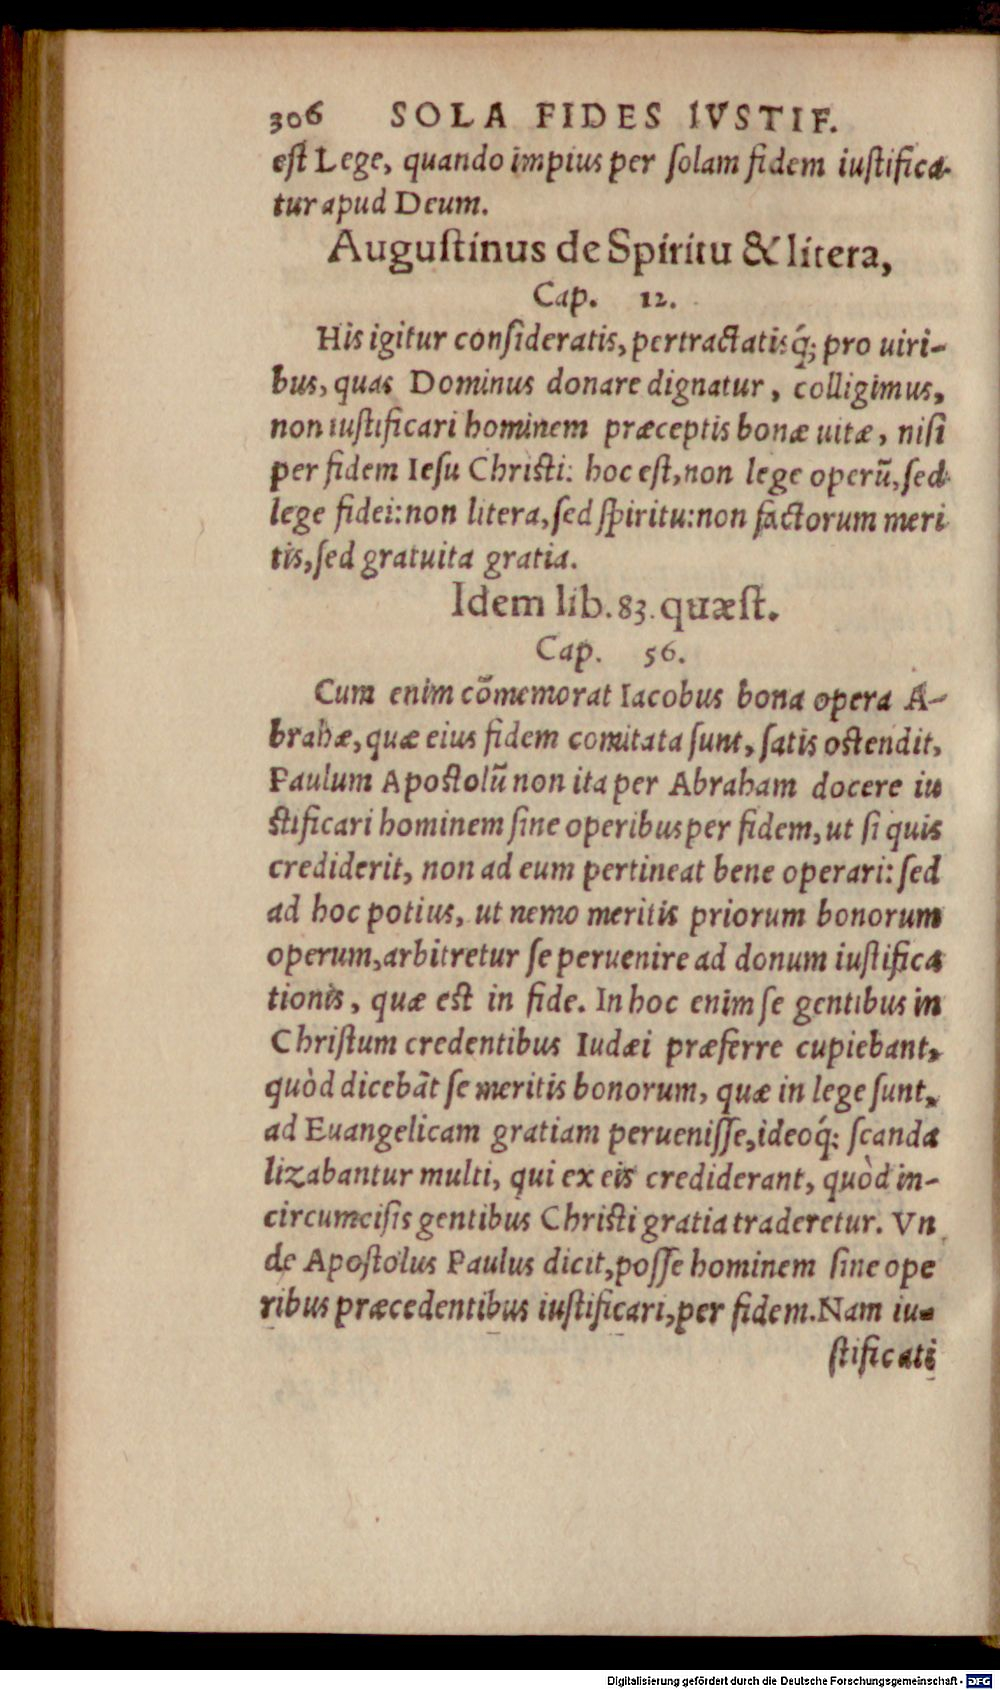 306 SOLA FIDES IVSTIF.
eſt Lege, quando impius per ſolam fidem iuſtifica-
tur apud Deum.
Auguſtinus de Spiritu & litera,
Cap. 12.
His igitur conſideratis, pertractatisq́; pro uiri-
bus, quas Dominus donare dignatur, colligimus,
non iuſtificari hominem præceptis bonæ uitæ, niſi
per fidem Ieſu Chriſti: hoc eſt, non lege operũ, ſed
lege fidei: non litera, ſed ſpiritu: non factorum meri
tis, ſed gratuita gratia.
Idem lib. 83. quæſt.
Cap. 56.
Cum enim cõmemorat Iacobus bona opera A-
brahæ, quæ eius fidem comitata ſunt, ſatis oſtendit,
Paulum Apoſtolũ non ita per Abraham docere iu
ſtificari hominem ſine operibus per fidem, ut ſi quis
crediderit, non ad eum pertineat bene operari: ſed
ad hoc potius, ut nemo meritis priorum bonorum
operum, arbitretur ſe peruenire ad donum iuſtifica
tionis, quæ eſt in fide. In hoc enim ſe gentibus in
Chriſtum credentibus Iudæi præferre cupiebant,
quòd dicebãt ſe meritis bonorum, quæ in lege ſunt,
ad Euangelicam gratiam perueniſſe, ideoq́; ſcanda
lizabantur multi, qui ex eis crediderant, quòd in-
circumciſis gentibus Chriſti gratia traderetur. Vn
de Apoſtolus Paulus dicit, poſſe hominem ſine ope
ribus præcedentibus iuſtificari, per fidem. Nam iu-
ſtificati
Digitalisierung gefördert durch die Deutsche Forschungsgemeinschaft - DFG